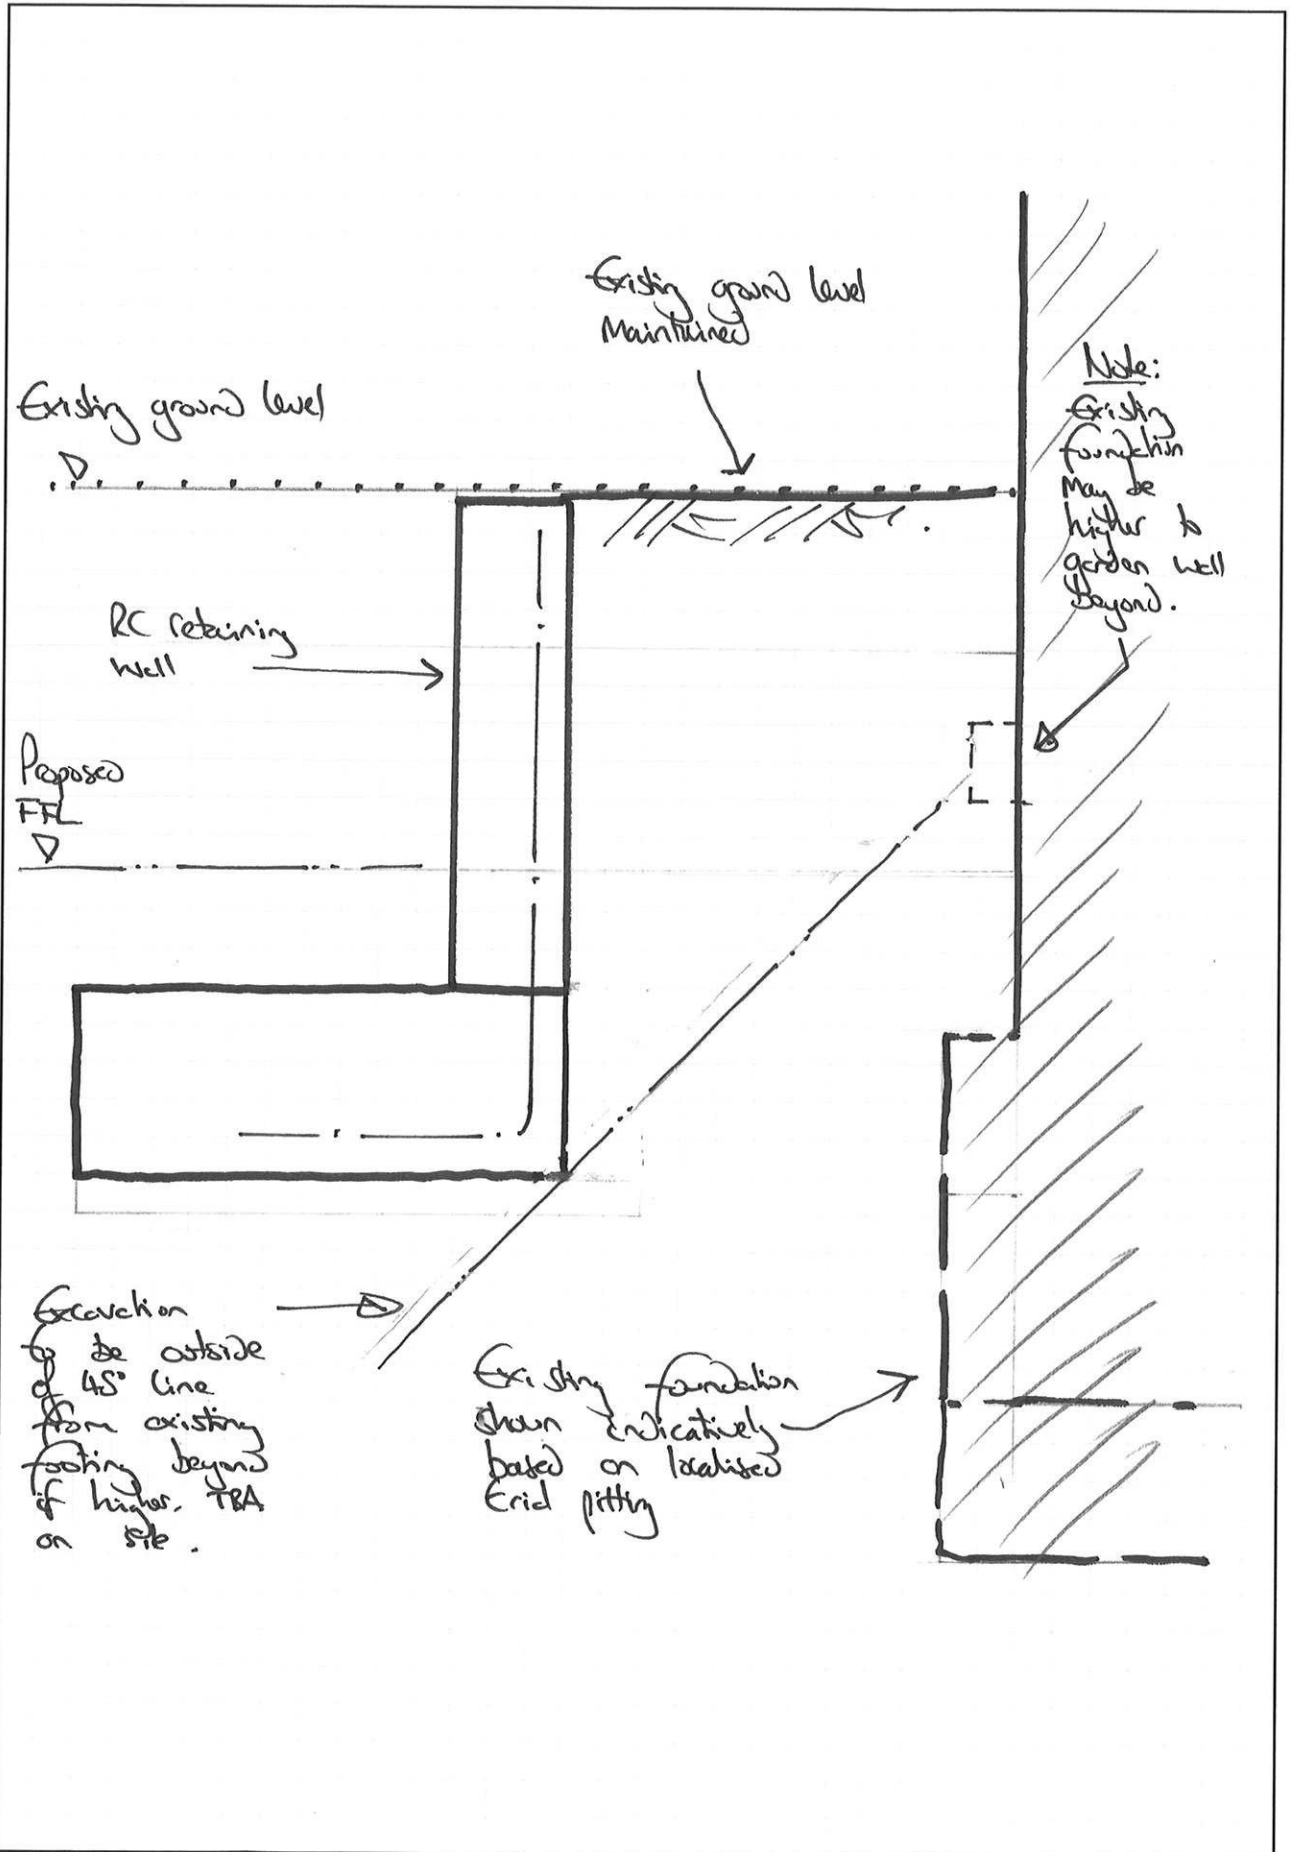 Existing ground level
Maintained
Existing ground level
Note:
Existing
foundation
May be
higher to
garden wall
Beyond.
RC retaining
wall
Proposed
FFL
Excavation
to be outside
of 45° line
from existing
footing beyond
if higher. TBA
on site.
Existing foundation
shown indicatively
based on localised
trial pitting